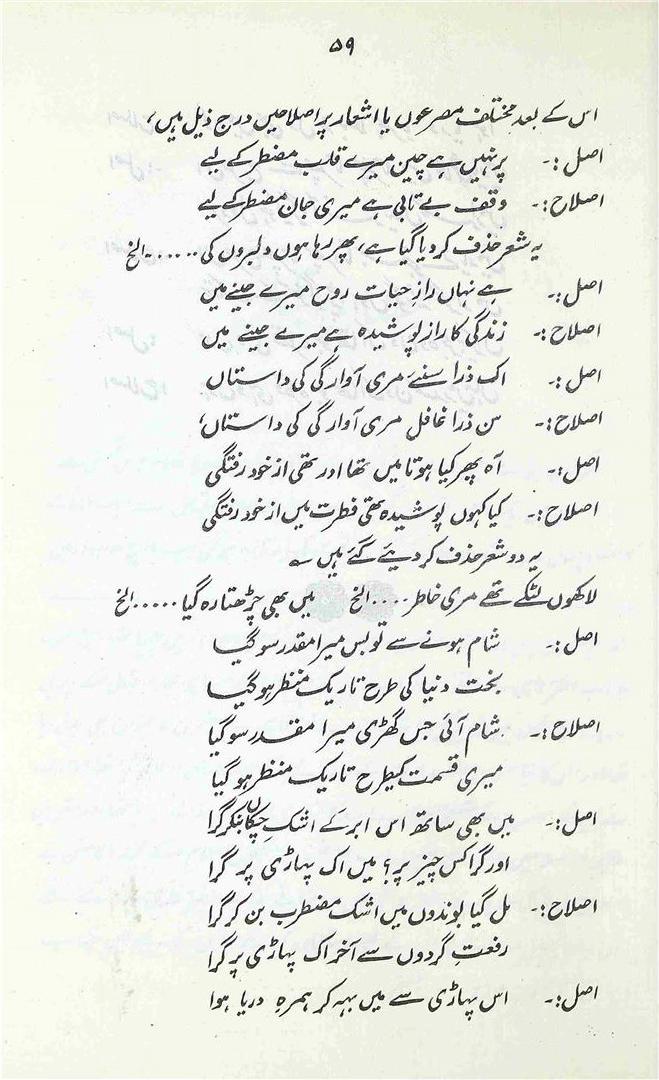 ۵۹
اس کے بعد مختلف مصرعوں یا اشعار پر اصلاحیں درج ذیل ہیں،
اصل:۔ پر نہیں ہے چین میرے قلب مضطر کے لیے
اصلاح:۔ وقف بے تابی ہے میری جان مضطر کے لیے
یہ شعر حذف کر دیا گیا ہے، پھر رہا ہوں دلبروں کی ...... الخ
اصل:۔ ہے نہاں رازِ حیات روح میرے جینے میں
اصلاح:۔ زندگی کا راز پوشیدہ ہے میرے جینے میں
اصل:۔ اک ذرا سنئے مری آوارگی کی داستاں
اصلاح:۔ سن ذرا غافل مری آوارگی کی داستاں،
اصل:۔ آہ پھر کیا ہوتا میں تھا اور تھی از خود رفتگی
اصلاح:۔ کیا کہوں پوشیدہ تھی فطرت میں از خود رفتگی
یہ دو شعر حذف کر دیئے گئے ہیں ؎
لاکھوں لٹکے تھے مری خاطر .... الخ میں بھی چڑھتا رہ گیا ..... الخ
اصل:۔ شام ہونے سے تو بس میرا مقدر سو گیا
بخت دنیا کی طرح تاریک منظر ہو گیا
اصلاح:۔ شام آئی جس گھڑی میرا مقدر سو گیا
میری قسمت کیطرح تاریک منظر ہو گیا
اصل:۔ میں بھی ساتھ اس ابر کے اشک چکاں بنکر گرا
اور گرا کس چیز پر؟ میں اک پہاڑی پر گرا
اصلاح:۔ مل گیا بوندوں میں اشک مضطرب بن کر گرا
رفعتِ گردوں سے آخر اک پہاڑی پر گرا
اصل:۔ اس پہاڑی سے میں بہہ کر ہمرہِ دریا ہوا